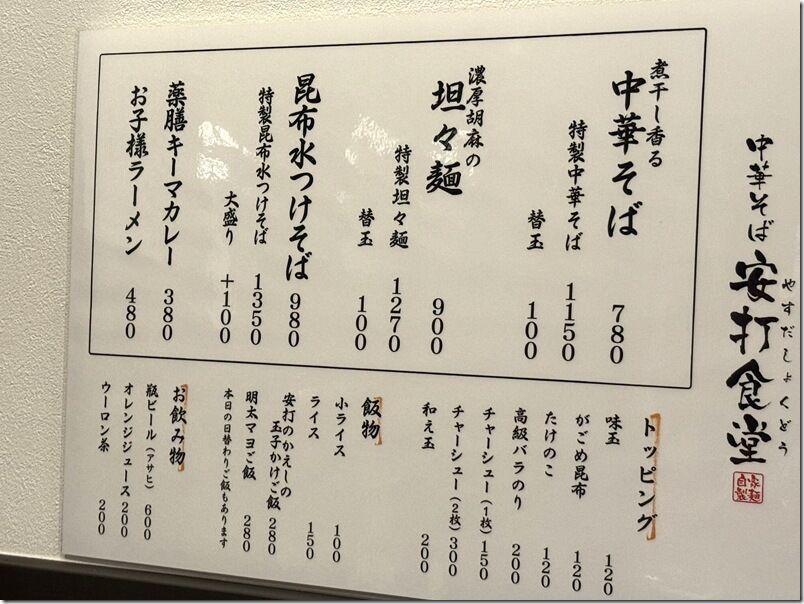 中華そば 安打食堂
やすだしょくどう
自家製麺
煮干し香る
中華そば 780
特製中華そば 1150
替玉 100
濃厚胡麻の
坦々麺 900
特製坦々麺 1270
替玉 100
昆布水つけそば 980
特製昆布水つけそば 1350
大盛り +100
薬膳キーマカレー 380
お子様ラーメン 480
トッピング
味玉 120
がごめ昆布 120
たけのこ 120
高級バラのり 200
チャーシュー(1枚) 150
チャーシュー(2枚) 300
和え玉 200
飯物
小ライス 100
ライス 150
安打のかえしの
玉子かけご飯 280
明太マヨご飯 280
本日の日替わりご飯もあります
お飲み物
瓶ビール(アサヒ) 600
オレンジジュース 200
ウーロン茶 200